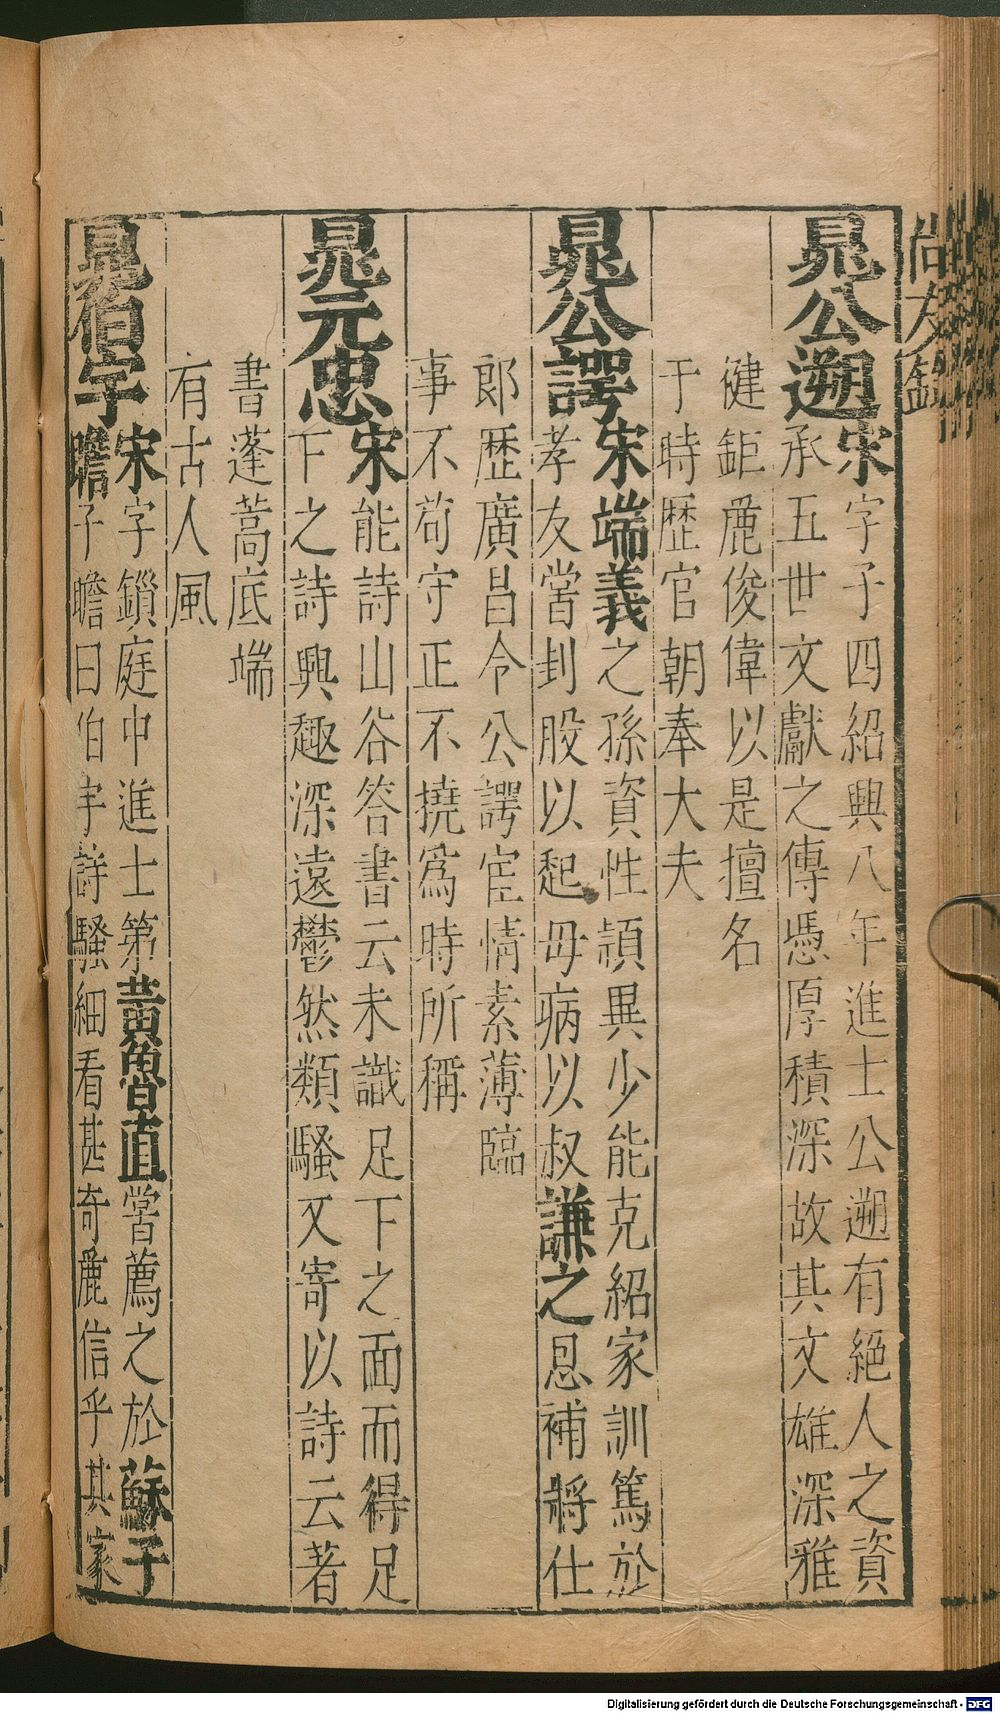 尚友錄
晁公遡宋字子四紹興八年進士公遡有絕人之資
承五世文獻之傳憑厚積深故其文雄深雅
健鉅麗俊偉以是擅名
于時歷官朝奉大夫
晁公諤宋端義之孫資性穎異少能克紹家訓篤於
孝友嘗刲股以起母病以叔謙之恩補將仕
郎歷廣昌令公諤宦情素薄臨
事不茍守正不撓爲時所稱
晁元忠宋能詩山谷答書云未識足下之面而得足
下之詩興趣深遠鬱然類騷又寄以詩云著
書蓬蒿底端
有古人風
晁伯宇宋字鎖庭中進士第黃魯直嘗薦之於蘇子
瞻子瞻曰伯宇詩騷細看甚奇麗信乎其家
Digitalisierung gefördert durch die Deutsche Forschungsgemeinschaft - DFG